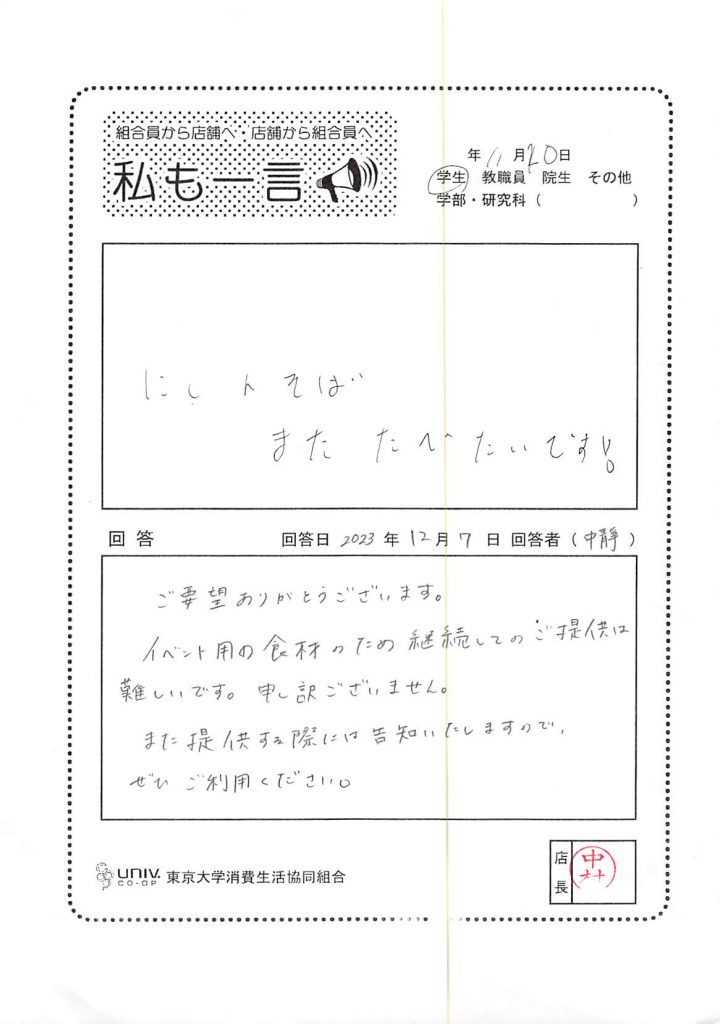 組合員から店舗へ・店舗から組合員へ
私も一言
年 11月20日
学生 教職員 院生 その他
学部・研究科（ ）
にしんそば
また たべたいです!!
回答 回答日 2023年12月7日 回答者（中静）
ご要望ありがとうございます。
イベント用の食材のため継続してのご提供は
難しいです。申し訳ございません。
また提供する際には告知いたしますので、
ぜひ ご利用ください。
UNIV. CO-OP 東京大学消費生活協同組合
店長 中村